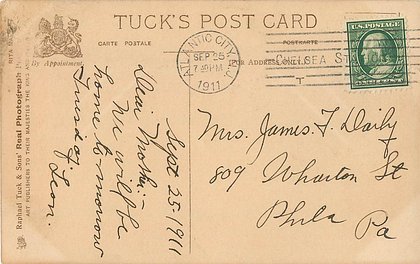 TUCK'S POST CARD
CARTE POSTALE
POSTKARTE
(FOR ADDRESS ONLY)
By Appointment.
RITA
Raphael Tuck & Sons' Real Photograph
ART PUBLISHERS TO THEIR MAJESTIES THE KING
ATLANTIC CITY, N.J.
SEP 25
7-PM
1911
CHELSEA STATION
U.S. POSTAGE
Sept 25-1911
Dear Mother:-
We will be
home to-morrow
Tuesday.
Leon.
Mrs. James T. Daily
809 Wharton St
Phila
Pa